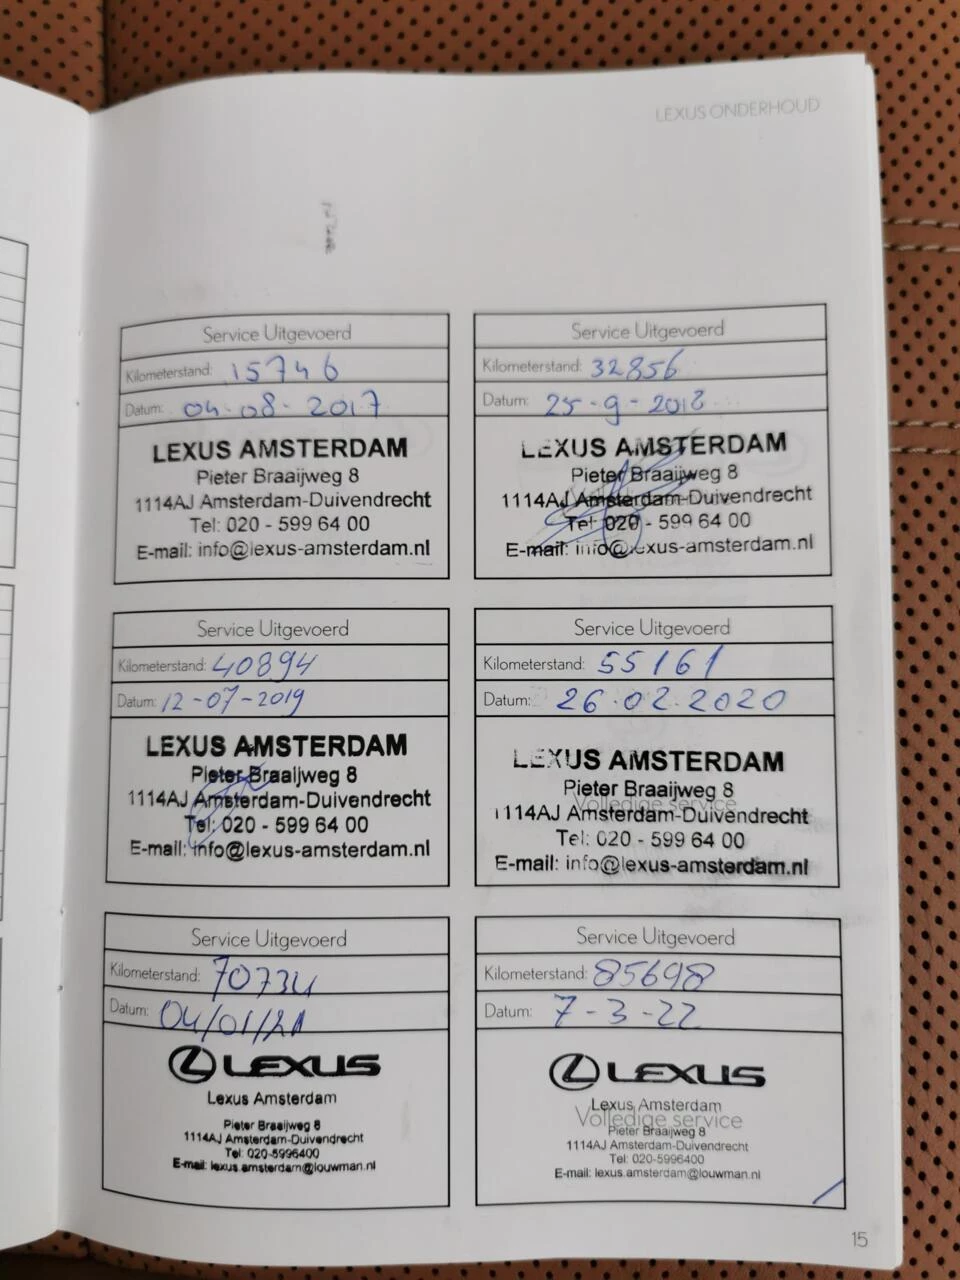 LEXUS ONDERHOUD
Service Uitgevoerd
Kilometerstand: 15746
Datum: 04-08-2017
LEXUS AMSTERDAM
Pieter Braaijweg 8
1114AJ Amsterdam-Duivendrecht
Tel: 020 - 599 64 00
E-mail: info@lexus-amsterdam.nl
Service Uitgevoerd
Kilometerstand: 32856
Datum: 25-9-2018
LEXUS AMSTERDAM
Pieter Braaijweg 8
1114AJ Amsterdam-Duivendrecht
Tel: 020 - 599 64 00
E-mail: info@lexus-amsterdam.nl
Service Uitgevoerd
Kilometerstand: 40894
Datum: 12-07-2019
LEXUS AMSTERDAM
Pieter Braaijweg 8
1114AJ Amsterdam-Duivendrecht
Tel: 020 - 599 64 00
E-mail: info@lexus-amsterdam.nl
Service Uitgevoerd
Kilometerstand: 55161
Datum: 26.02.2020
LEXUS AMSTERDAM
Pieter Braaijweg 8
Volledige service
1114AJ Amsterdam-Duivendrecht
Tel: 020 - 599 64 00
E-mail: info@lexus-amsterdam.nl
Service Uitgevoerd
Kilometerstand: 70734
Datum: 04/01/21
LEXUS
Lexus Amsterdam
Pieter Braaijweg 8
1114AJ Amsterdam-Duivendrecht
Tel: 020-5996400
E-mail: lexus.amsterdam@louwman.nl
Service Uitgevoerd
Kilometerstand: 85698
Datum: 7-3-22
LEXUS
Lexus Amsterdam
Volledige service
Pieter Braaijweg 8
1114AJ Amsterdam-Duivendrecht
Tel: 020-5996400
E-mail: lexus.amsterdam@louwman.nl
15